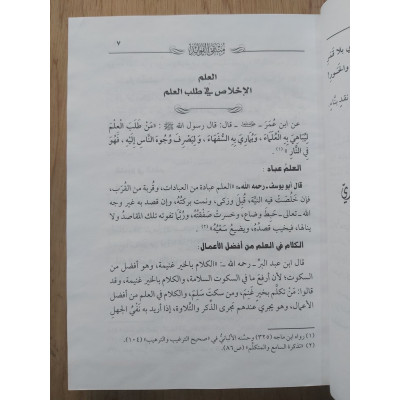 ٧
العلم
الإخلاص في طلب العلم
عن ابن عُمَرَ ـ ـ قال: قال رسول الله ﷺ: «مَنْ طَلَبَ العِلْمَ
لِيُبَاهِيَ بِهِ العُلَمَاءَ، وَيُمَارِيَ بِهِ السُّفَهَاءَ، أَوْ لِيَصْرِفَ وُجُوهَ النَّاسِ إِلَيْهِ، فَهُوَ
فِي النَّارِ»(١).
العلم عباده :
قال أبو يوسف ـ رحمه الله ـ: «العلم عبادة من العبادات، وقُربة من القُرَب،
فإن خَلُصَتْ فيه النيَّة، قُبِل وزكى، ونمت بركتُهُ، وإن قصد به غير وجه
الله ـ تعالى ـ حَبِطَ وضاع، وخسرتْ صَفْقَتُهُ، ورُبَّما تفوته تلك المقاصدُ ولا
ينالها، فيخيب قصدُهُ، ويضيع سَعْيُهُ»(٢).
الكلام في العلم من أفضل الأعمال:
قال ابن عبد البرِّ ـ رحمه الله ـ: «الكلام بالخير غنيمة، وهو أفضل من
السكوت؛ لأن أرفعَ ما في السكوت السلامة، والكلام بالخير غنيمة، وقد
قالوا: مَنْ تكلَّم بخيرٍ غَنِمَ، ومن سكتَ سَلِمَ، والكلام في العلم من أفضل
الأعمال، وهو يجري عندهم مجرى الذِّكر والتِّلاوة، إذا أريد به نَفْيُ الجهلِ
(١) رواه ابن ماجه (٢٥٣) وحسَّنه الألبانيُّ في «صحيح الترغيب والترهيب» (١٠٤).
(٢) «تذكرة السامع والمتكلِّم» (ص٨٦).